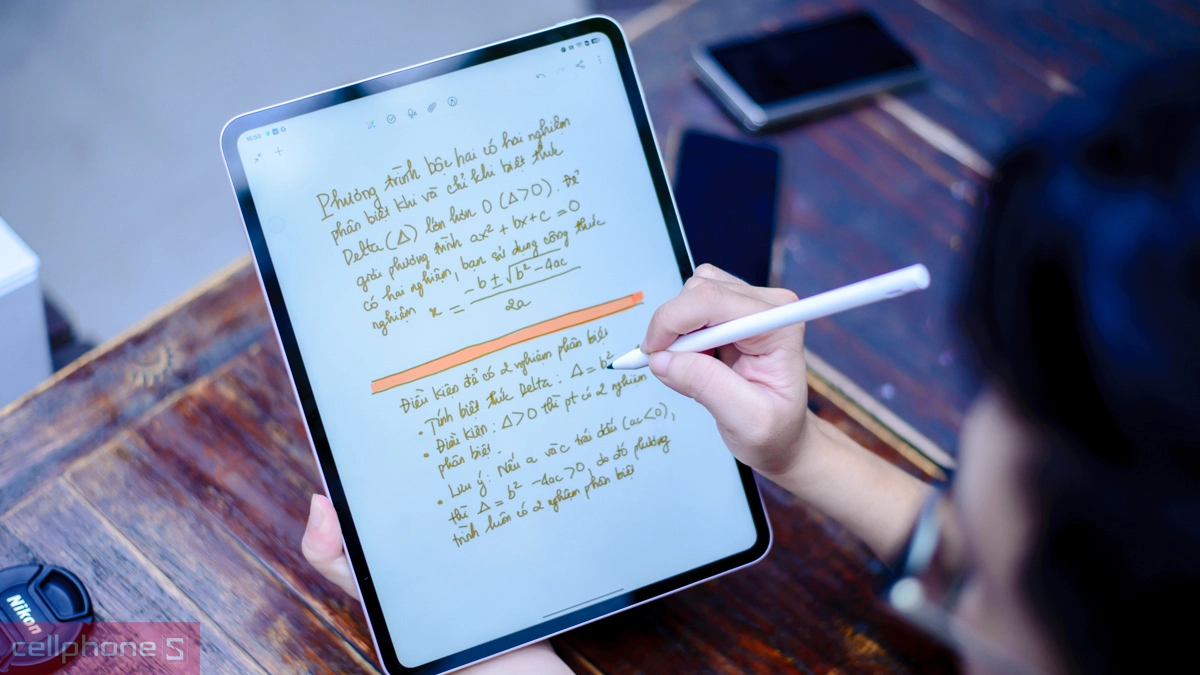 Phương trình bậc hai có hai nghiệm
phân biệt khi và chỉ khi biệt thức
Delta (Δ) lớn hơn 0 (Δ>0). Để
giải phương trình ax² + bx + c = 0
có hai nghiệm, bạn sử dụng công thức
nghiệm x = -b ± √b² - 4ac
2a
Điều kiện để có 2 nghiệm phân biệt
• Tính biệt thức Delta : Δ = b²
• Điều kiện : Δ>0 thì pt có 2 nghiệm
phân biệt
• Lưu ý : Nếu a và c trái dấu (ac<0),
thì Δ = b² - 4ac >0, do đó phương
trình luôn có 2 nghiệm phân biệt
Nikon
cellphone S